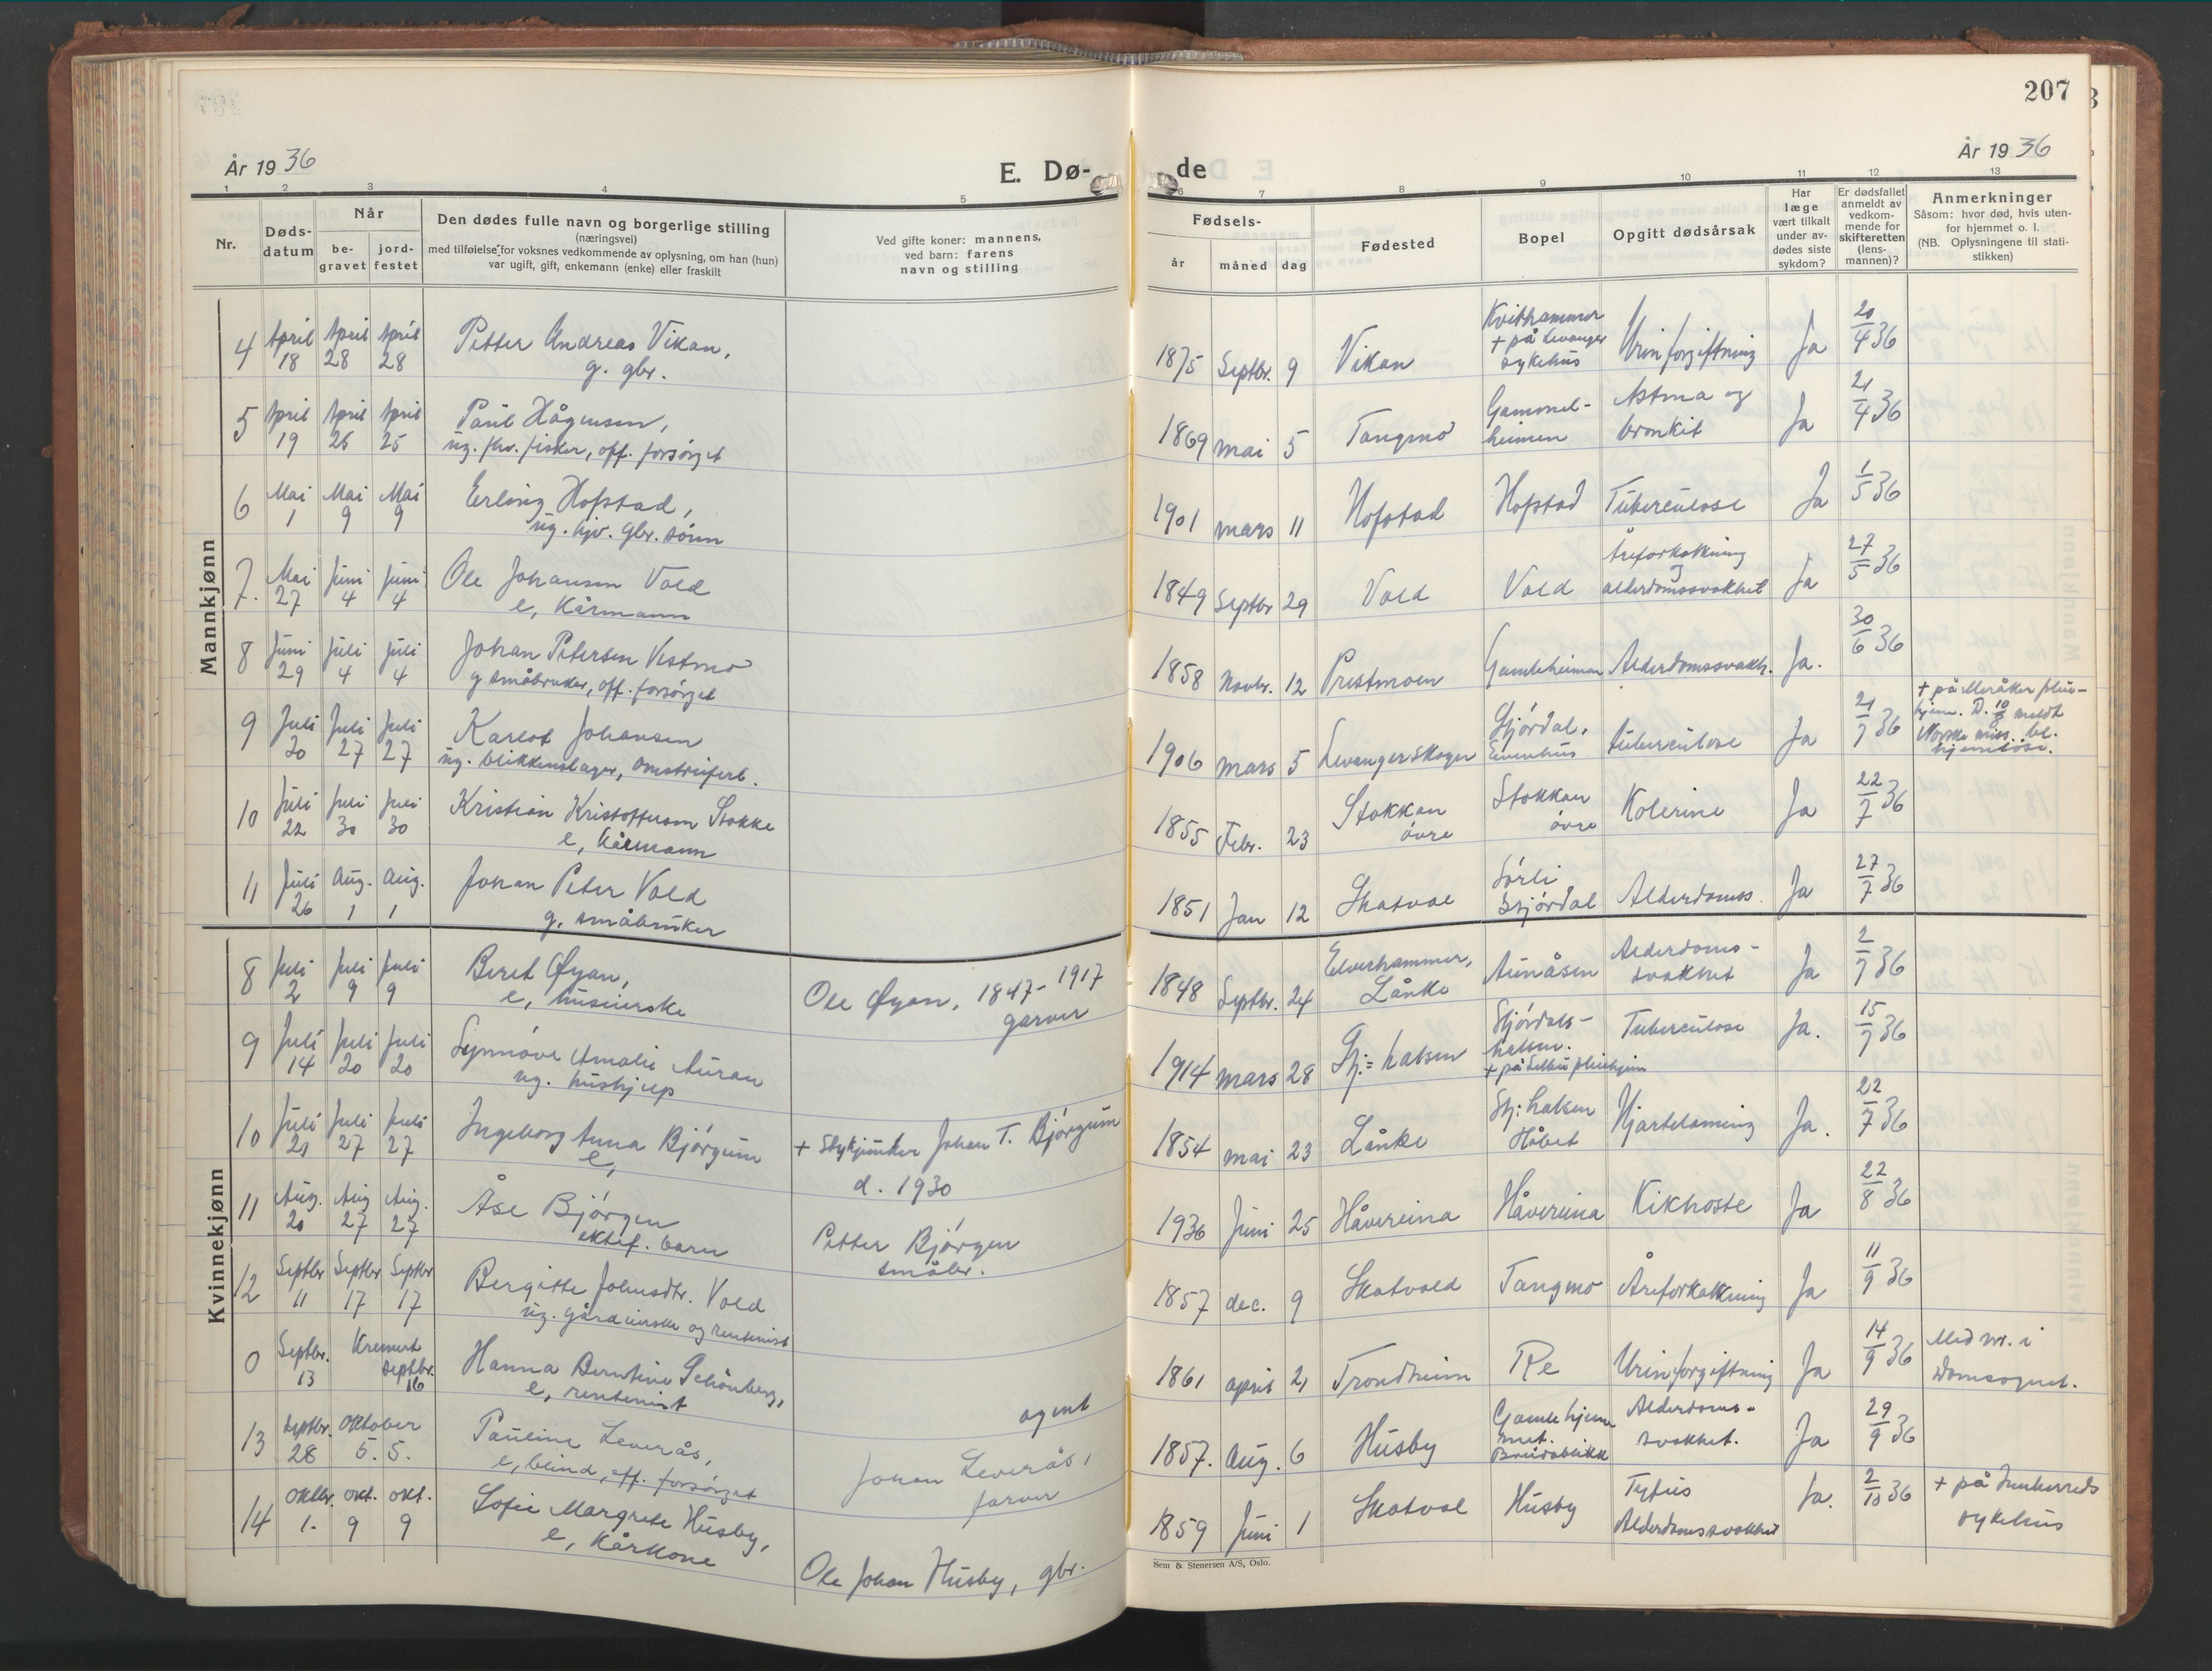 207
År 1936
E. Dø-
de
År 1936
1 2 3 4 5
6 7 8 9 10 11 12 13
Nr.
Døds-
datum
Når
be-
gravet
jord-
festet
Den dødes fulle navn og borgerlige stilling
(næringsvei)
med tilføielse for voksnes vedkommende av oplysning, om han (hun)
var ugift, gift, enkemann (enke) eller fraskilt
Ved gifte koner: mannens,
ved barn: farens
navn og stilling
Fødsels-
år måned dag
Fødested
Bopel
Opgitt dødsårsak
Har
læge
vært tilkalt
under av-
dødes siste
sykdom?
Er dødsfallet
anmeldt av
vedkom-
mende for
skifteretten
(lens-
mannen)?
Anmerkninger
Såsom: hvor død, hvis uten-
for hjemmet o. l.
(NB. Oplysningene til stati-
stikken)
Mannkjønn
4 April 18 April 28 April 28 Petter Andreas Vikan,
g. gbr.
1875 Septbr. 9 Vikan Kvithammer
+ på Levanger
sykehus
Urinforgiftning Ja 20/4 36
5 April 19 April 25 April 25 Paul Hågensen,
ug. fhv. fisker, off. forsørget
1869 mai 5 Tangmo Gammel-
heimen
Astma og
bronkit
Ja 21/4 36
6 Mai 1 Mai 9 Mai 9 Erling Hofstad,
ug. hjv. gbr. sønn
1901 mars 11 Hofstad Hofstad Tuberculose Ja 1/5 36
7. Mai 27 Juni 4 Juni 4 Ole Johansen Vold
e, Kårmann
1849 Septbr 29 Vold Vold Åreforkalkning
og
alderdomssvakhet
Ja 27/5 36
8 Juni 29 Juli 4 Juli 4 Johan Petersen Vestmo
g småbruker, off. forsørget
1858 Novbr. 12 Prestmoen Gamleheimen Alderdomssvakh. Ja. 30/6 36
9 Juli 20 Juli 27 Juli 27 Karlot Johansen
ug. blikkenslager, omstreiferb.
1906 mars 5 Levangerskogen Stjørdal,
Evenhus
tuberculose Ja 21/7 36
+ på Meråker pleie-
hjem. D. 10/8 meldt
Norske miss. bl.
hjemløse.
10 Juli 22 Juli 30 Juli 30 Kristian Kristoffersen Stokke
e, Kårmann
1855 Febr. 23 Stokkan
øvre
Stokkan
øvre
Kolerine Ja 22/7 36
11 Juli 26 Aug. 1 Aug. 1 Johan Peter Vold
g, småbruker
1851 Jan 12 Skatval Sørli
Stjørdal
Alderdomss. Ja 27/7 36
Kvinnekjønn
8 Juli 2 Juli 9 Juli 9 Beret Øyan,
e, huseierske
Ole Øyan, 1847-1917
garver
1848 Septbr. 24 Elverhammer,
Lånke
Aunåsen Alderdoms-
svakhet
Ja 2/7 36
9 Juli 14 Juli 20 Juli 20 Synnøve Amalie Auran
ug. hushjelp
1914 mars 28 Stj.=halsen Stjørdals-
halsen.
+ på Selbu pleiehjem
Tuberculose Ja. 15/7 36
10 Juli 21 Juli 27 Juli 27 Ingeborg Anna Bjørgum
e,
+ Stykjunker Johan T. Bjørgum
d. 1930
1854 mai 23 Lånke Stj:halsen
Håbet
Hjartelaming Ja. 22/7 36
11 Aug. 20 Aug 27 Aug. 27 Åse Bjørgen
ektef. barn
Petter Bjørgen
småbr.
1936 Juni 25 Håvereina Håvereina Kikhoste Ja 22/8 36
12 Septbr 11 Septbr 17 Septbr 17 Bergitte Johnsdtr. Vold
ug. gårdeierske og rentenist
1857 dec. 9 Skatvold Tangmo Åreforkalkning Ja 11/9 36
0 Septbr. 13 Kremert Septbr. 16 Hanna Berntine Schönberg,
e, rentenist
agent
1861 april 21 Trondheim Re Urinforgiftning Ja 14/9 36
Med nr. i
Domsognet.
13 Septbr. 28 oktober 5. 5. Pauline Leverås,
e, blind, off. forsørget
Johan Leverås,
farver
1857. Aug. 6 Husby Gamlehjem
met.
Breidablikk
Alderdoms-
svakhet.
Ja 29/9 36
14 Oktbr. 1. okt. 9 okt. 9 Sofie Margrete Husby,
e, Kårkone
Ole Johan Husby, gbr.
1859 Juni 1 Skatval Husby Tyfus
Alderdomssvakhet
Ja. 2/10 36
+ på Innherreds
sykehus
Sem & Stenersen A/S, Oslo.